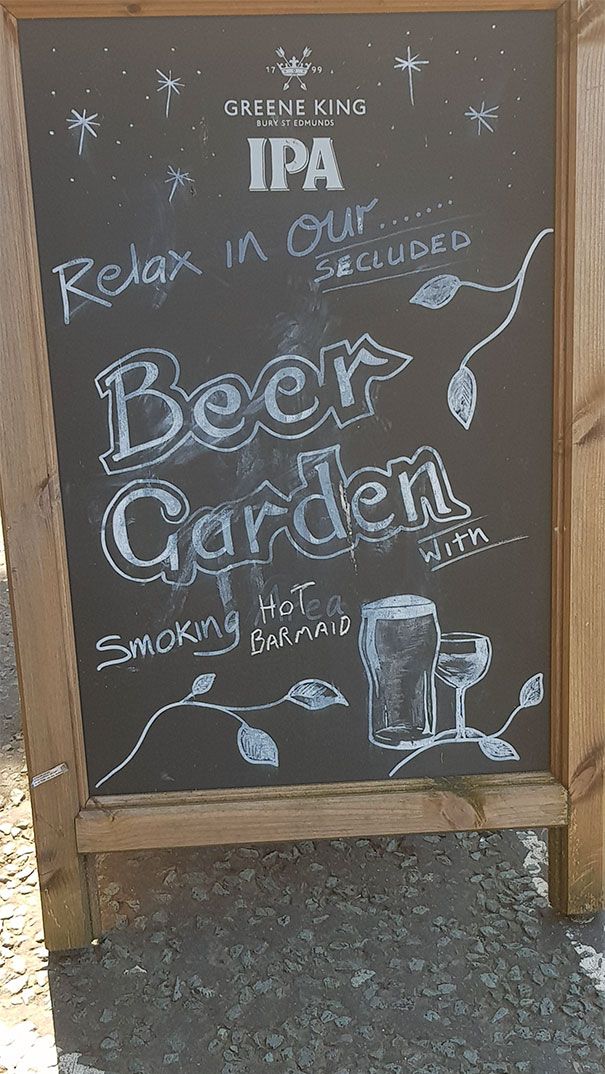 17 99
GREENE KING
BURY ST EDMUNDS
IPA
Relax in our.......
SECLUDED
Beer
Garden
with
Smoking Area
HOT
BARMAID